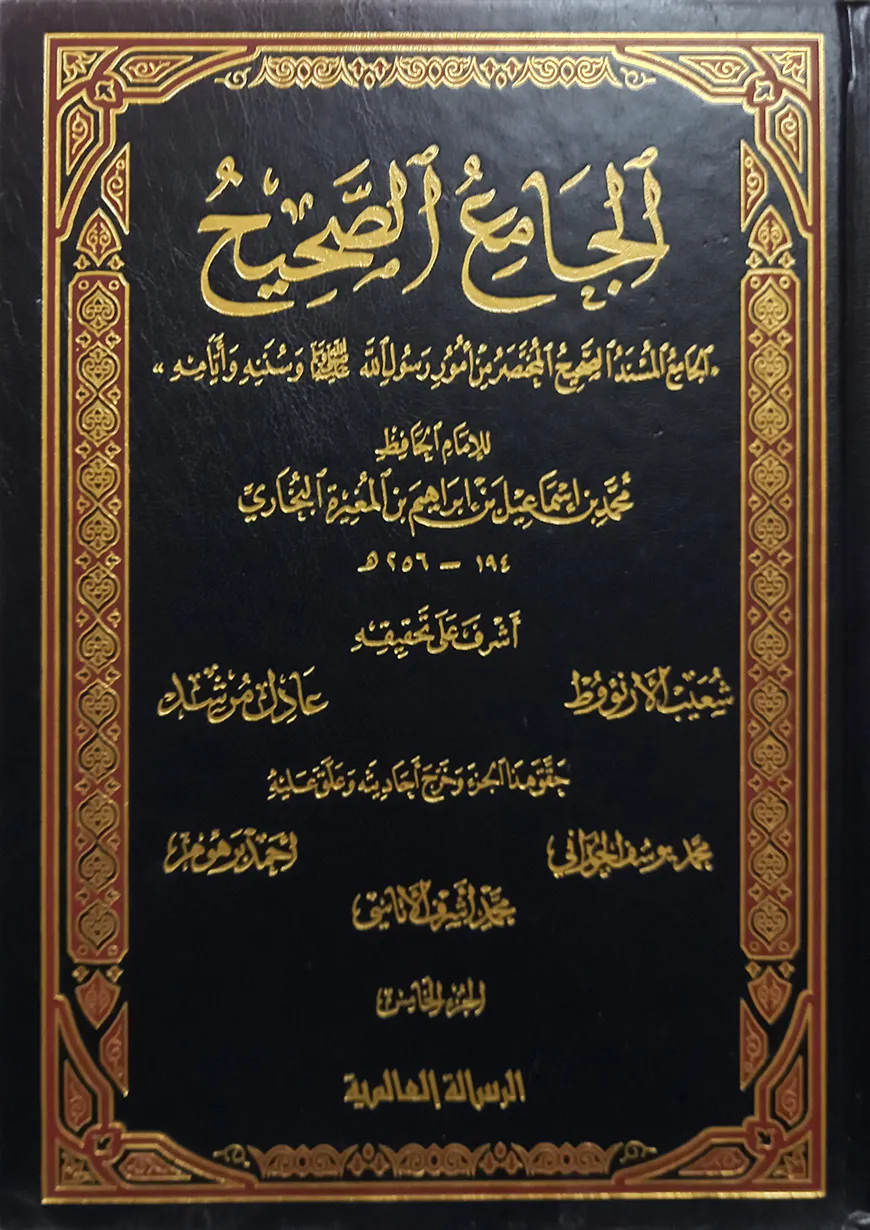 الجَامِعُ الصَّحِيحُ
«الجَامِعُ المُسْنَدُ الصَّحِيحُ المُخْتَصَرُ مِنْ أُمُورِ رَسُولِ اللَّه ﷺ وَسُنَنِهِ وَأَيَّامِهِ»
للإمَامِ الحَافِظِ
مُحَمَّد بن إسْمَاعِيل بن إبرَاهِيم بن المُغِيرَة البُخَاريِّ
١٩٤ - ٢٥٦ هـ
أَشْرَفَ عَلى تَحقِيقِهِ
شُعَيب الأرنؤوط عَادِل مُرشد
حَقَّقَ هَذَا الجُزءَ وَخَرَّجَ أَحَادِيثَه وَعَلَّقَ عَلَيْهِ
محمد يوسف الجوراني أحمَد برهوم
محمَّد أشرف الأتاسي
الجزء الخامس
الرسالة العالمية